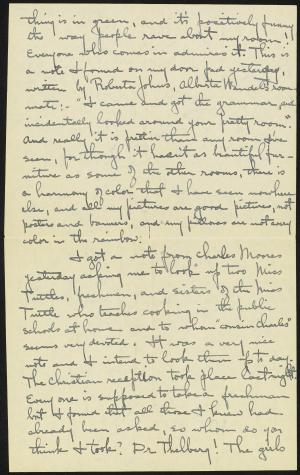 thing is in green, and it's positively funny
the way people rave about my room!
Everyone who comes in admires it. This is
a note I found on my door pad yesterday,
written by Roberta Johns, Alberta Wandel's room-
mate:- "I came and got the grammar, and
incidentally looked around your pretty room".
And really it is prettier than any room I've
seen, for though it hasn't as beautiful fur-
niture as some of the other rooms, there is
a harmony of color that I have seen nowhere
else, and all my pictures are good pictures, not
posters and banners, and my pillows are not every
color in the rainbow.
I got a note from Charles Moores
yesterday asking me to look up two Miss
Tuttles, freshmen, and sisters of the Miss
Tuttle who teaches cooking in the public
schools at home and to whom "cousin Charles"
seems very devoted. It was a very nice
note and I intend to look them up to-day.
The Christian reception took place last night.
Everyone is supposed to take a freshman
but I found that all those I knew had
already been asked, so whom do you
think I took? Dr Thelberg! The girls